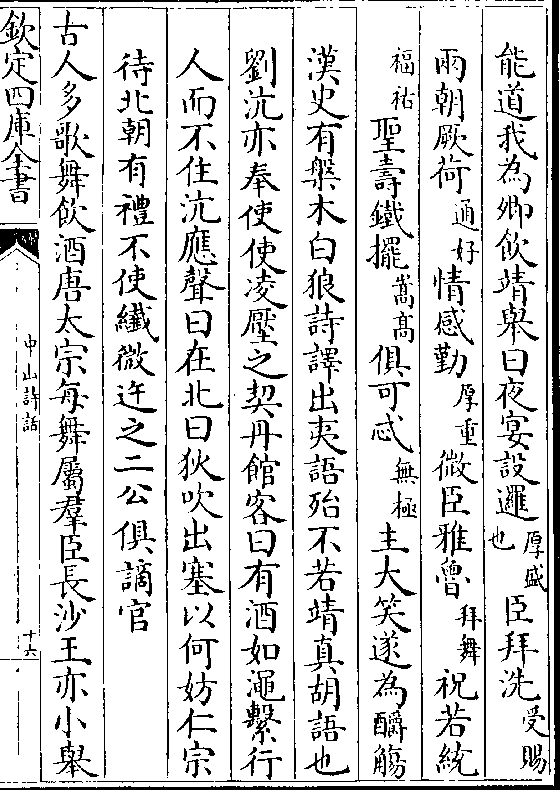 能道我為卿飲靖舉曰夜宴設邏厚盛也臣拜洗受賜
兩朝厥荷通好情感勤厚重微臣雅魯拜舞祝若統
福祐聖壽鐵擺嵩高俱可忒無極主大笑遂為釂觴
漢史有槃木白狼詩譯出夷語殆不若靖真胡語也
劉沆亦奉使使凌壓之契丹館客曰有酒如澠繫行
人而不住沆應聲曰在北曰狄吹出塞以何妨仁宗
待北朝有禮不使纖微迕之二公俱謫官
古人多歌舞飲酒唐太宗每舞屬羣臣長沙王亦小舉
欽定四庫全書
中山詩話
十六